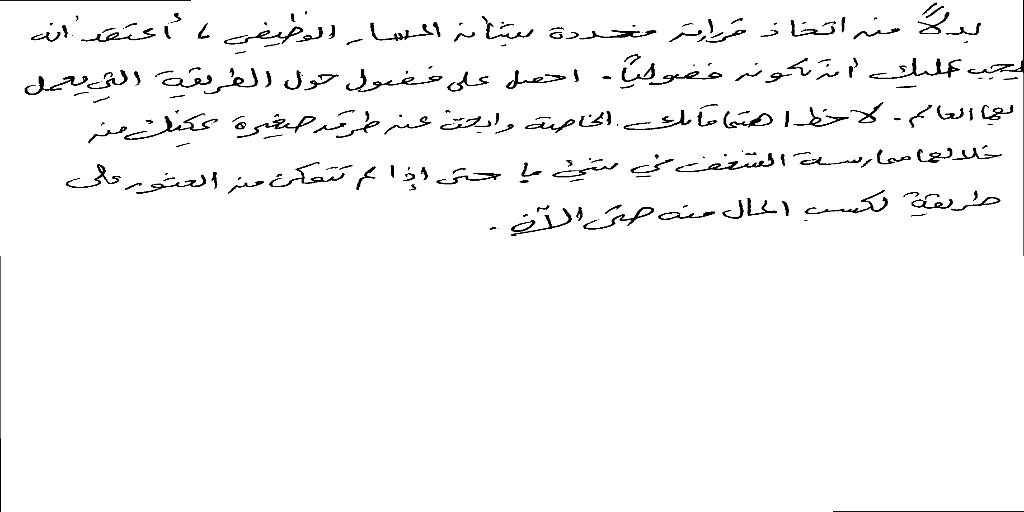 بدلاً من اتخاذ قرارات محددة بشأن المسار الوظيفي ، أعتقد أنه
يجب عليك أن تكون فضولياً . احصل على فضول حول الطريقة التي يعمل
بها العالم . لاحظ اهتماماتك الخاصة وابحث عن طرق صغيرة يمكنك من
خلالها ممارسة الشغف في شيء ما حتى إذا لم تتمكن من العثور على
طريقة لكسب المال منه حتى الآن .